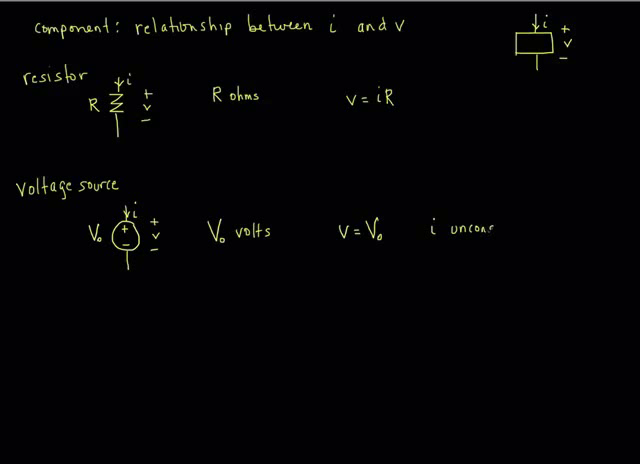 component: relationship between i and v
i
+
v
-
resistor
i
R
+
v
-
R ohms
v = iR
voltage source
i
V₀
+
-
+
v
-
V₀ volts
v = V₀
i uncons